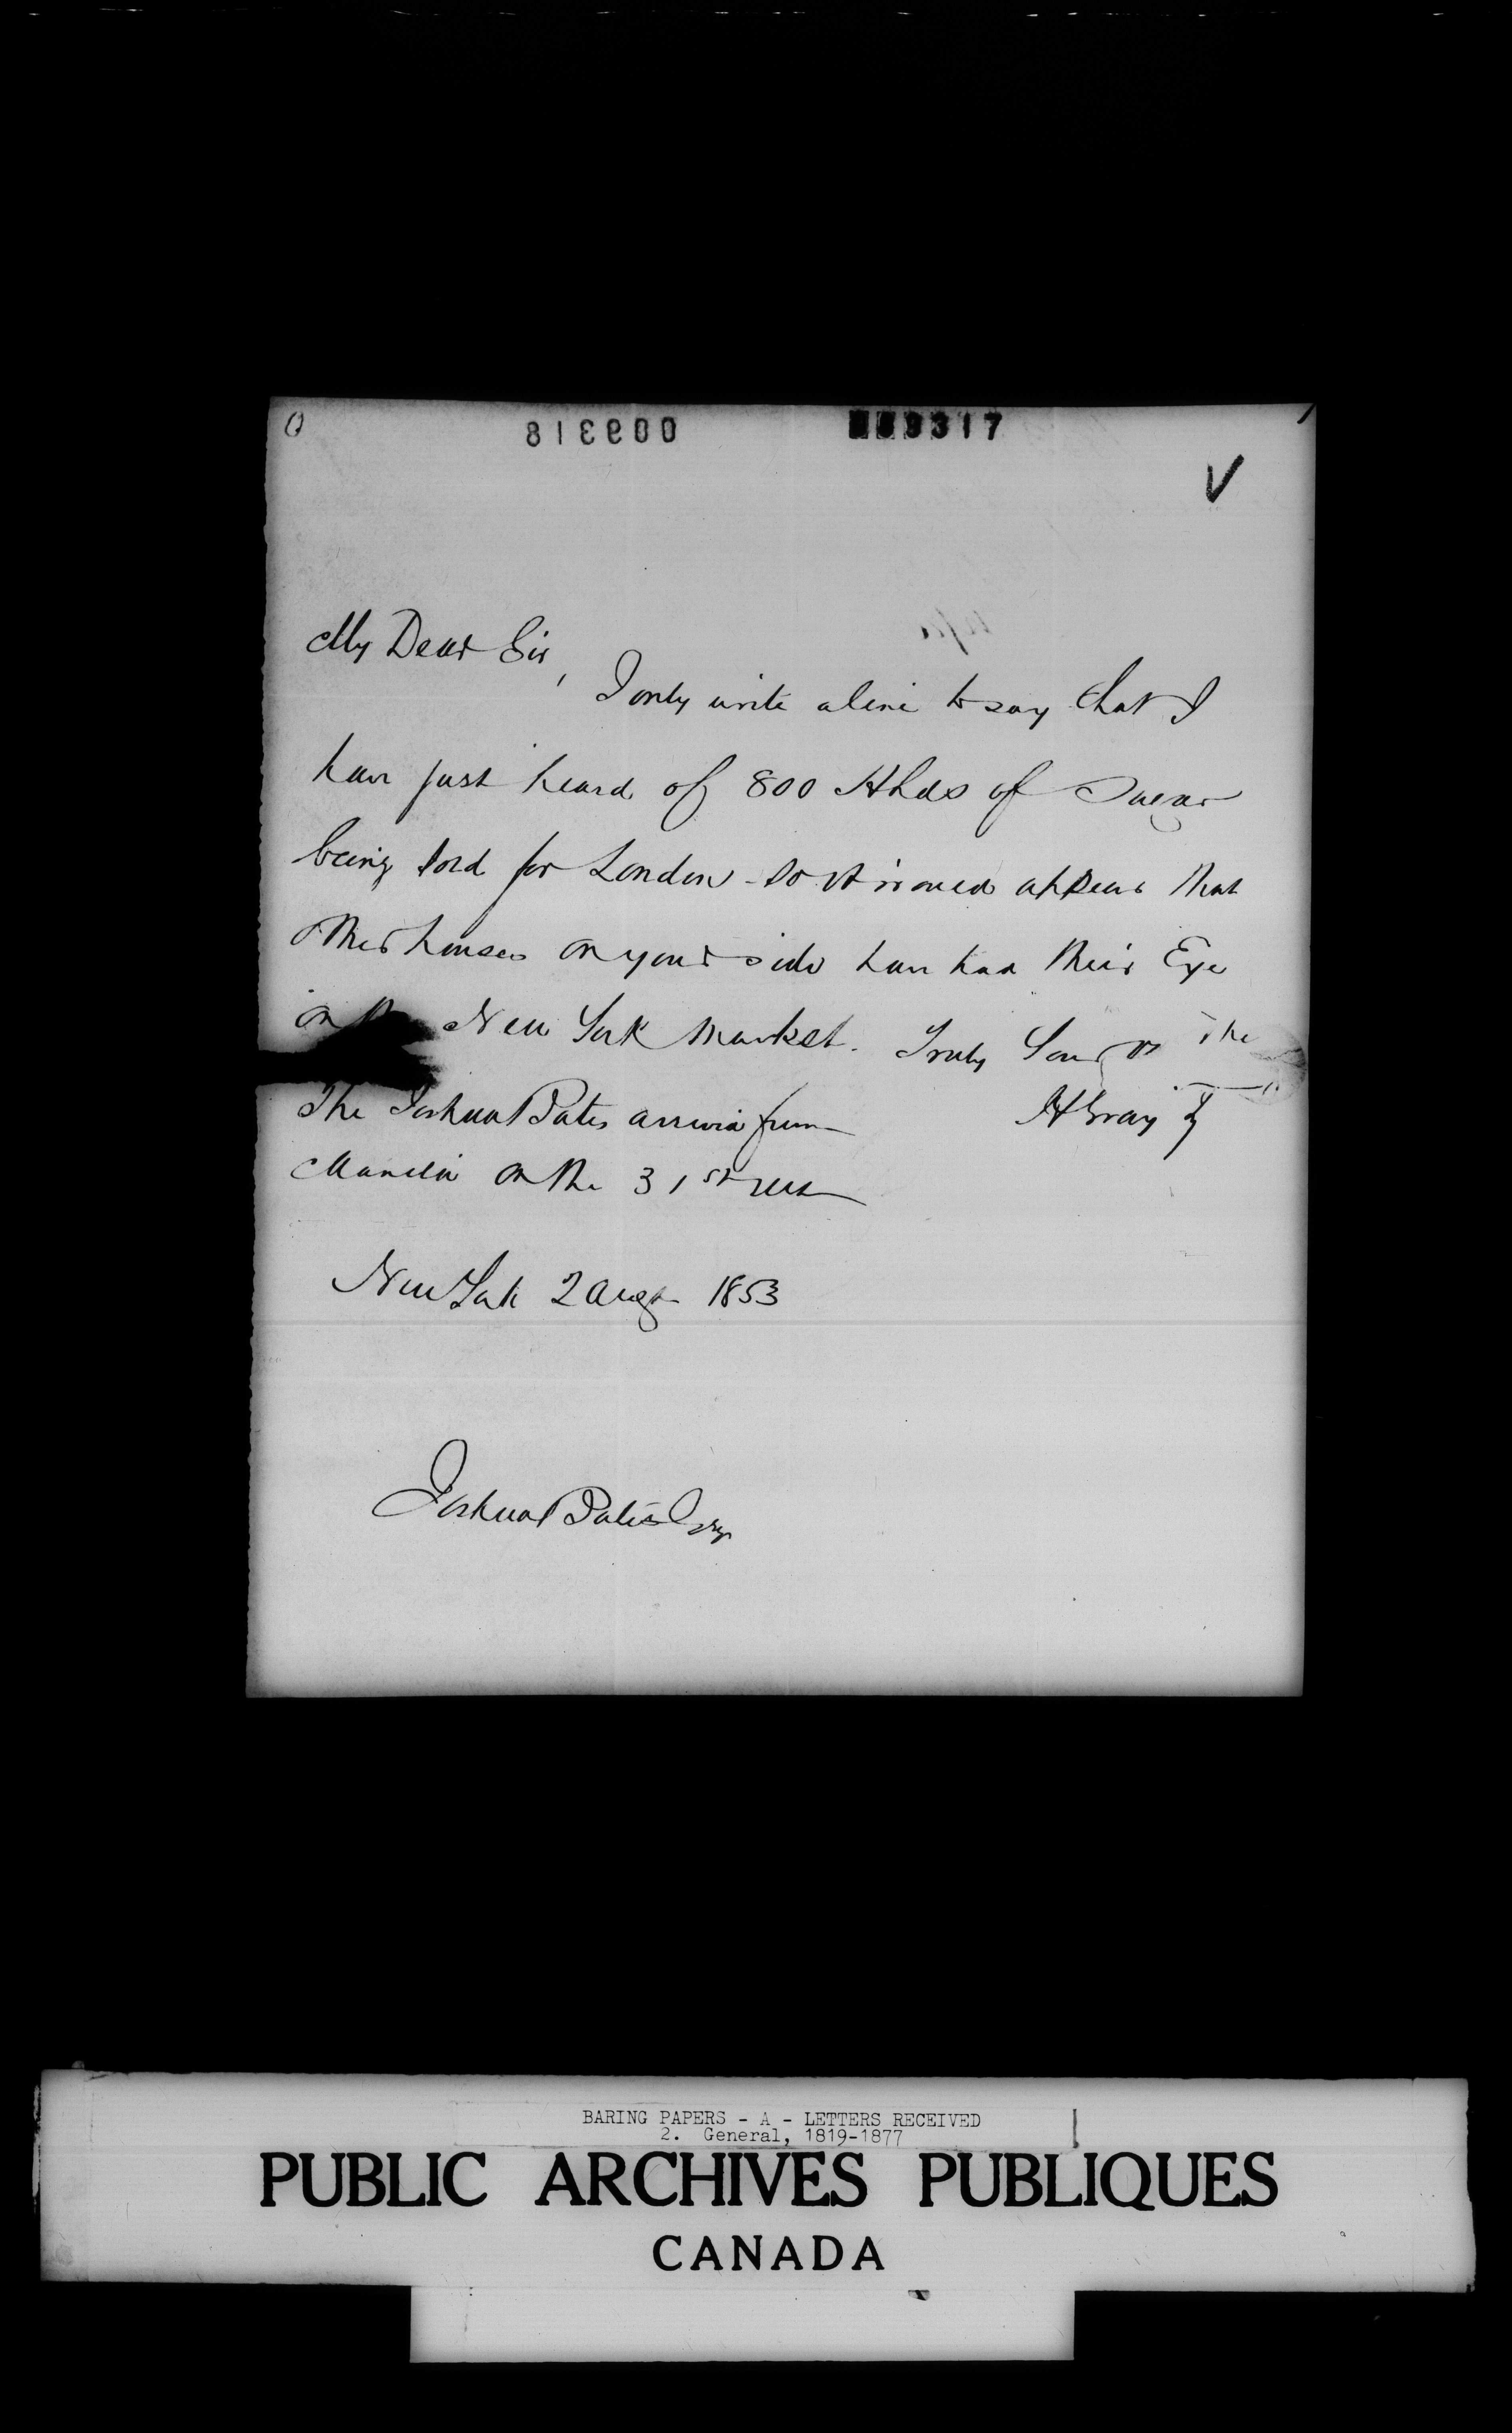 009317
My Dear Sir,
I only write a line to say that I
have just heard of 800 Hhds of Sugar
being sold for London - so it would appear that
other houses on your side have had their Eye
on the New York Market. Truly Yours
The
The Joshua Bates arrived from
H Gray
Manila on the 31st ult
New York 2 Augt 1853
Joshua Bates Esqr
BARING PAPERS - A - LETTERS RECEIVED
2. General, 1819-1877
PUBLIC ARCHIVES PUBLIQUES
CANADA